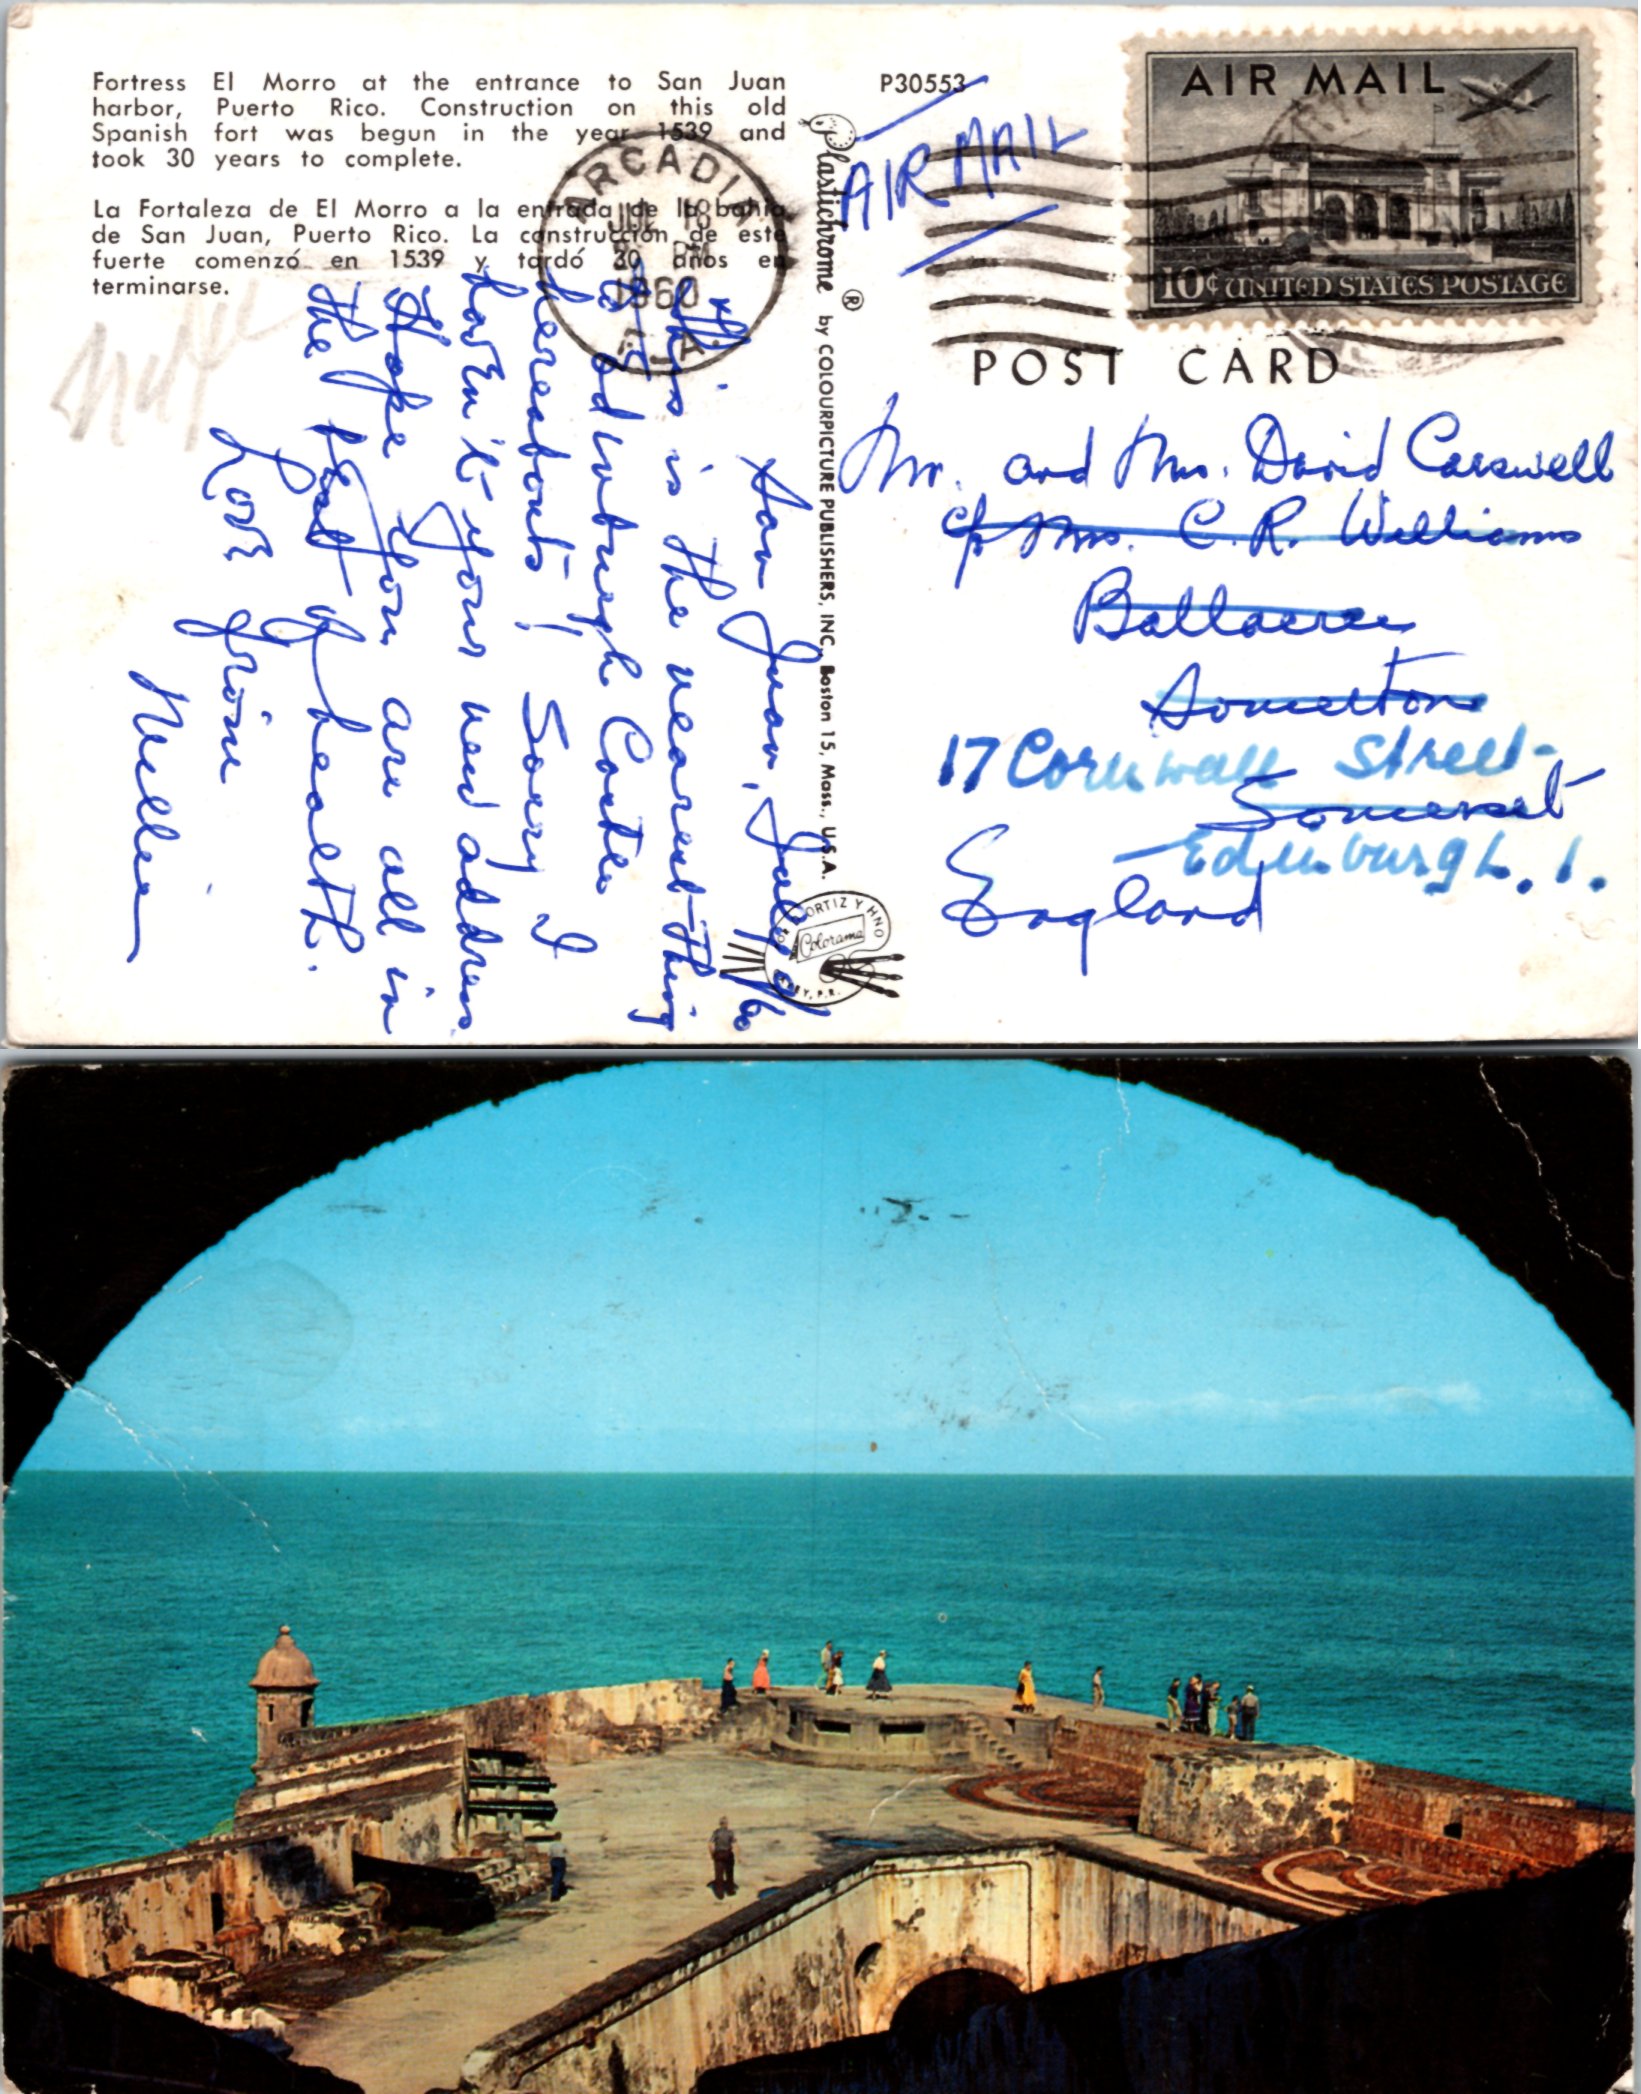 Fortress El Morro at the entrance to San Juan
harbor, Puerto Rico. Construction on this old
Spanish fort was begun in the year 1539 and
took 30 years to complete.
La Fortaleza de El Morro a la entrada de la bahía
de San Juan, Puerto Rico. La construcción de este
fuerte comenzó en 1539 y tardó 30 años en
terminarse.
ARCADIA
JUL 18
PM
1960
LA.
San Juan, July
"This is the nearest thing
to Edinburgh Castle"
hereabouts! Sorry I
haven't your new address
Hope you are all in
the best of health.
Love from
Millie
Plastichrome ® by COLOURPICTURE PUBLISHERS, INC., Boston 15, Mass., U.S.A.
ORTIZ Y HNO
Colorama
P.R.
P30553
AIR MAIL
AIR MAIL
10¢ UNITED STATES POSTAGE
POST CARD
Mr. and Mrs. David Carswell
c/o Mrs. C. R. Williams
Ballacree
Somerton
17 Cornwall Street
Somerset
Edinburgh. 1.
England